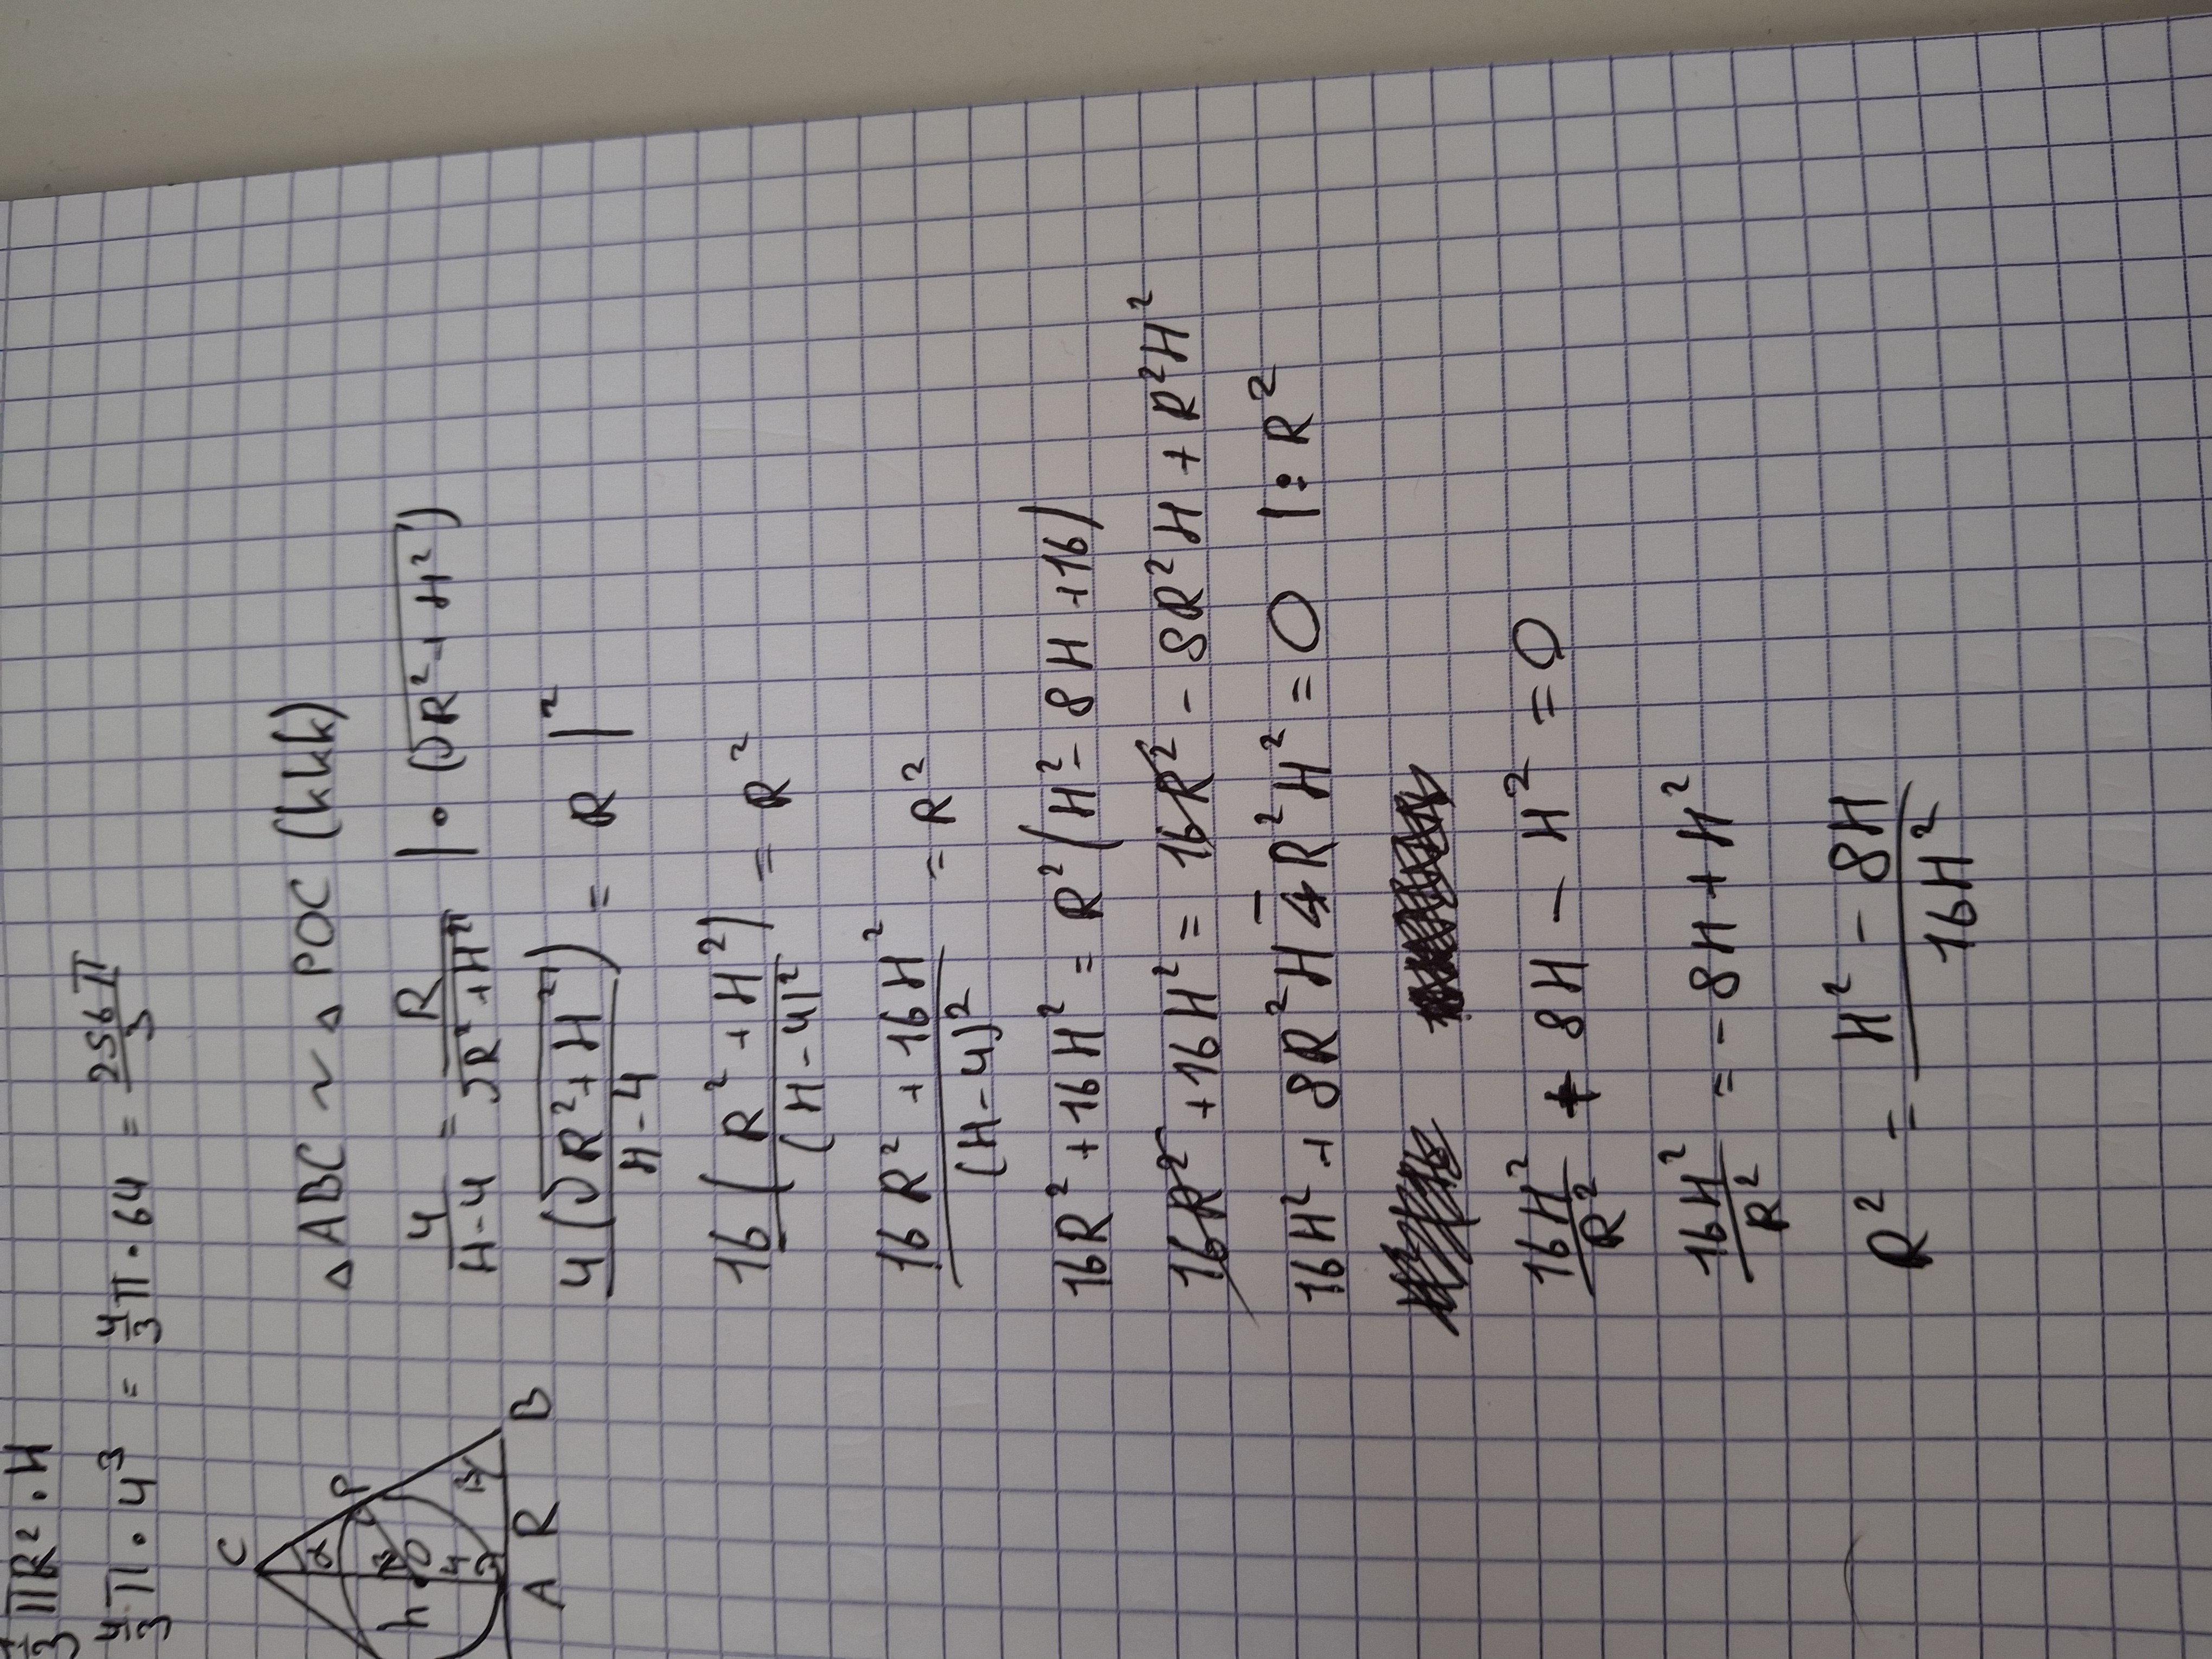 1/3 πR² · H
4/3 π · 4³ = 4/3 π · 64 = 256π/3
C
P
α
h
O
4
A R B
△ABC ~ △POC (kkk)
4/(H-4) = R/√(R²+H²) | · (√(R²+H²))
4(√(R²+H²))/(H-4) = R |²
16(R²+H²)/(H-4)² = R²
(16R²+16H²)/(H-4)² = R²
16R²+16H² = R²(H²-8H+16)
16R²+16H² = 16R² - 8R²H + R²H²
16H² + 8R²H - R²H² = 0 | : R²
16H²/R² + 8H - H² = 0
16H²/R² = -8H + H²
R² = (H² - 8H)/(16H²)